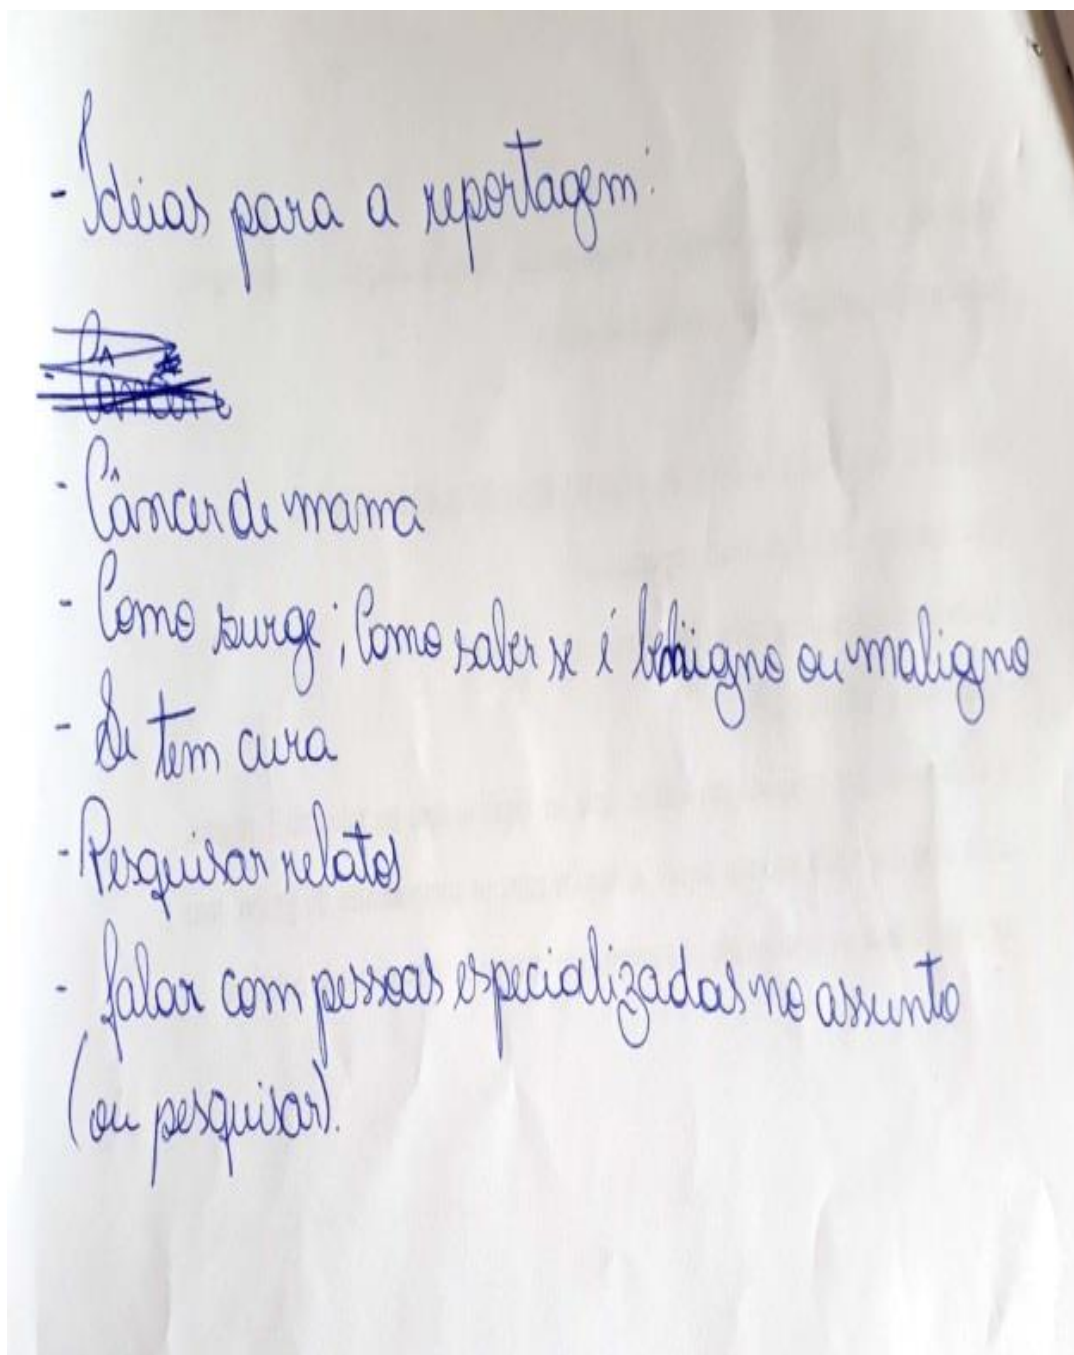 - Idéias para a reportagem:
- Câncer
- Câncer de mama
- Como surge; Como saber se é benigno ou maligno
- Se tem cura
- Pesquisar relatos
- falar com pessoas especializadas no assunto
(ou pesquisar).